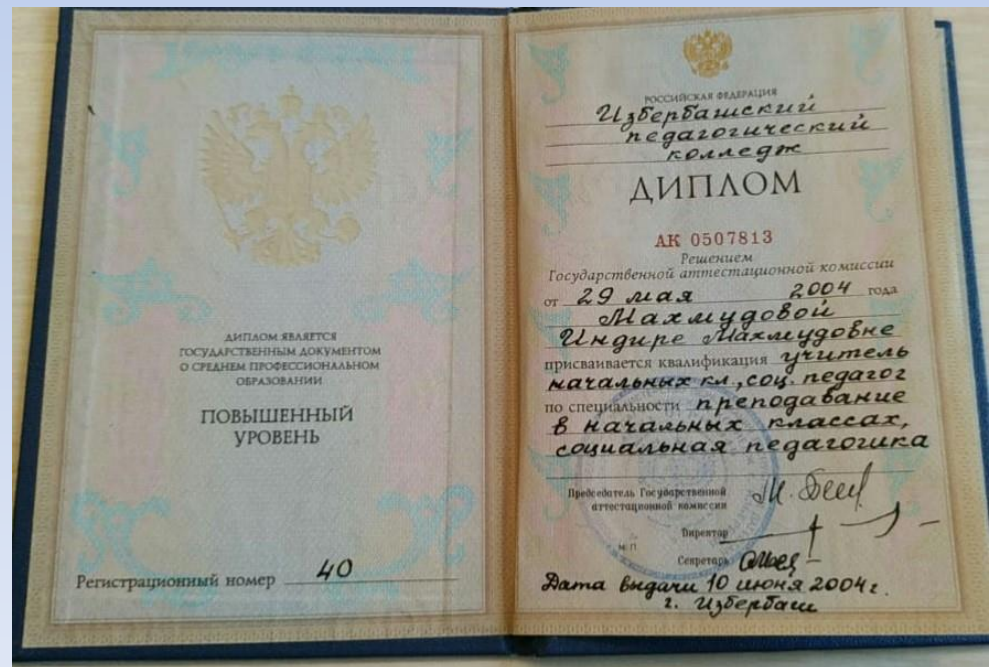 ДИПЛОМ ЯВЛЯЕТСЯ
ГОСУДАРСТВЕННЫМ ДОКУМЕНТОМ
О СРЕДНЕМ ПРОФЕССИОНАЛЬНОМ
ОБРАЗОВАНИИ
ПОВЫШЕННЫЙ
УРОВЕНЬ
Регистрационный номер 40
РОССИЙСКАЯ ФЕДЕРАЦИЯ
Избербашский
педагогический
колледж
ДИПЛОМ
АК 0507813
Решением
Государственной аттестационной комиссии
от 29 мая 2004 года
Махмудовой
Индире Махмудовне
присваивается квалификация учитель
начальных кл., соц. педагог
по специальности преподавание
в начальных классах,
социальная педагогика
Председатель Государственной
аттестационной комиссии
Директор
М.П.
Секретарь
Дата выдачи 10 июня 2004г.
г. Избербаш